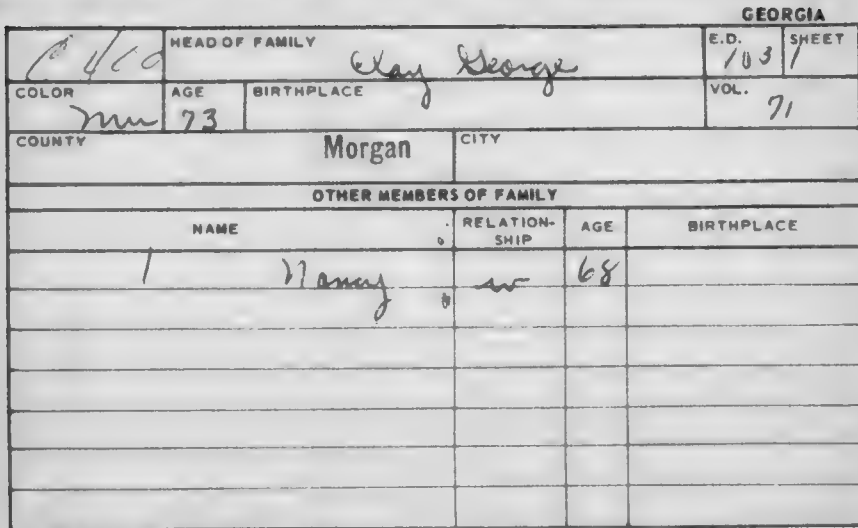 GEORGIA
C 4/60
HEAD OF FAMILY Clay George
E.D. 103
SHEET 1
COLOR Mu
AGE 73
BIRTHPLACE
VOL. 71
COUNTY Morgan
CITY
OTHER MEMBERS OF FAMILY
NAME RELATION-SHIP AGE BIRTHPLACE
1 Nancy w 68